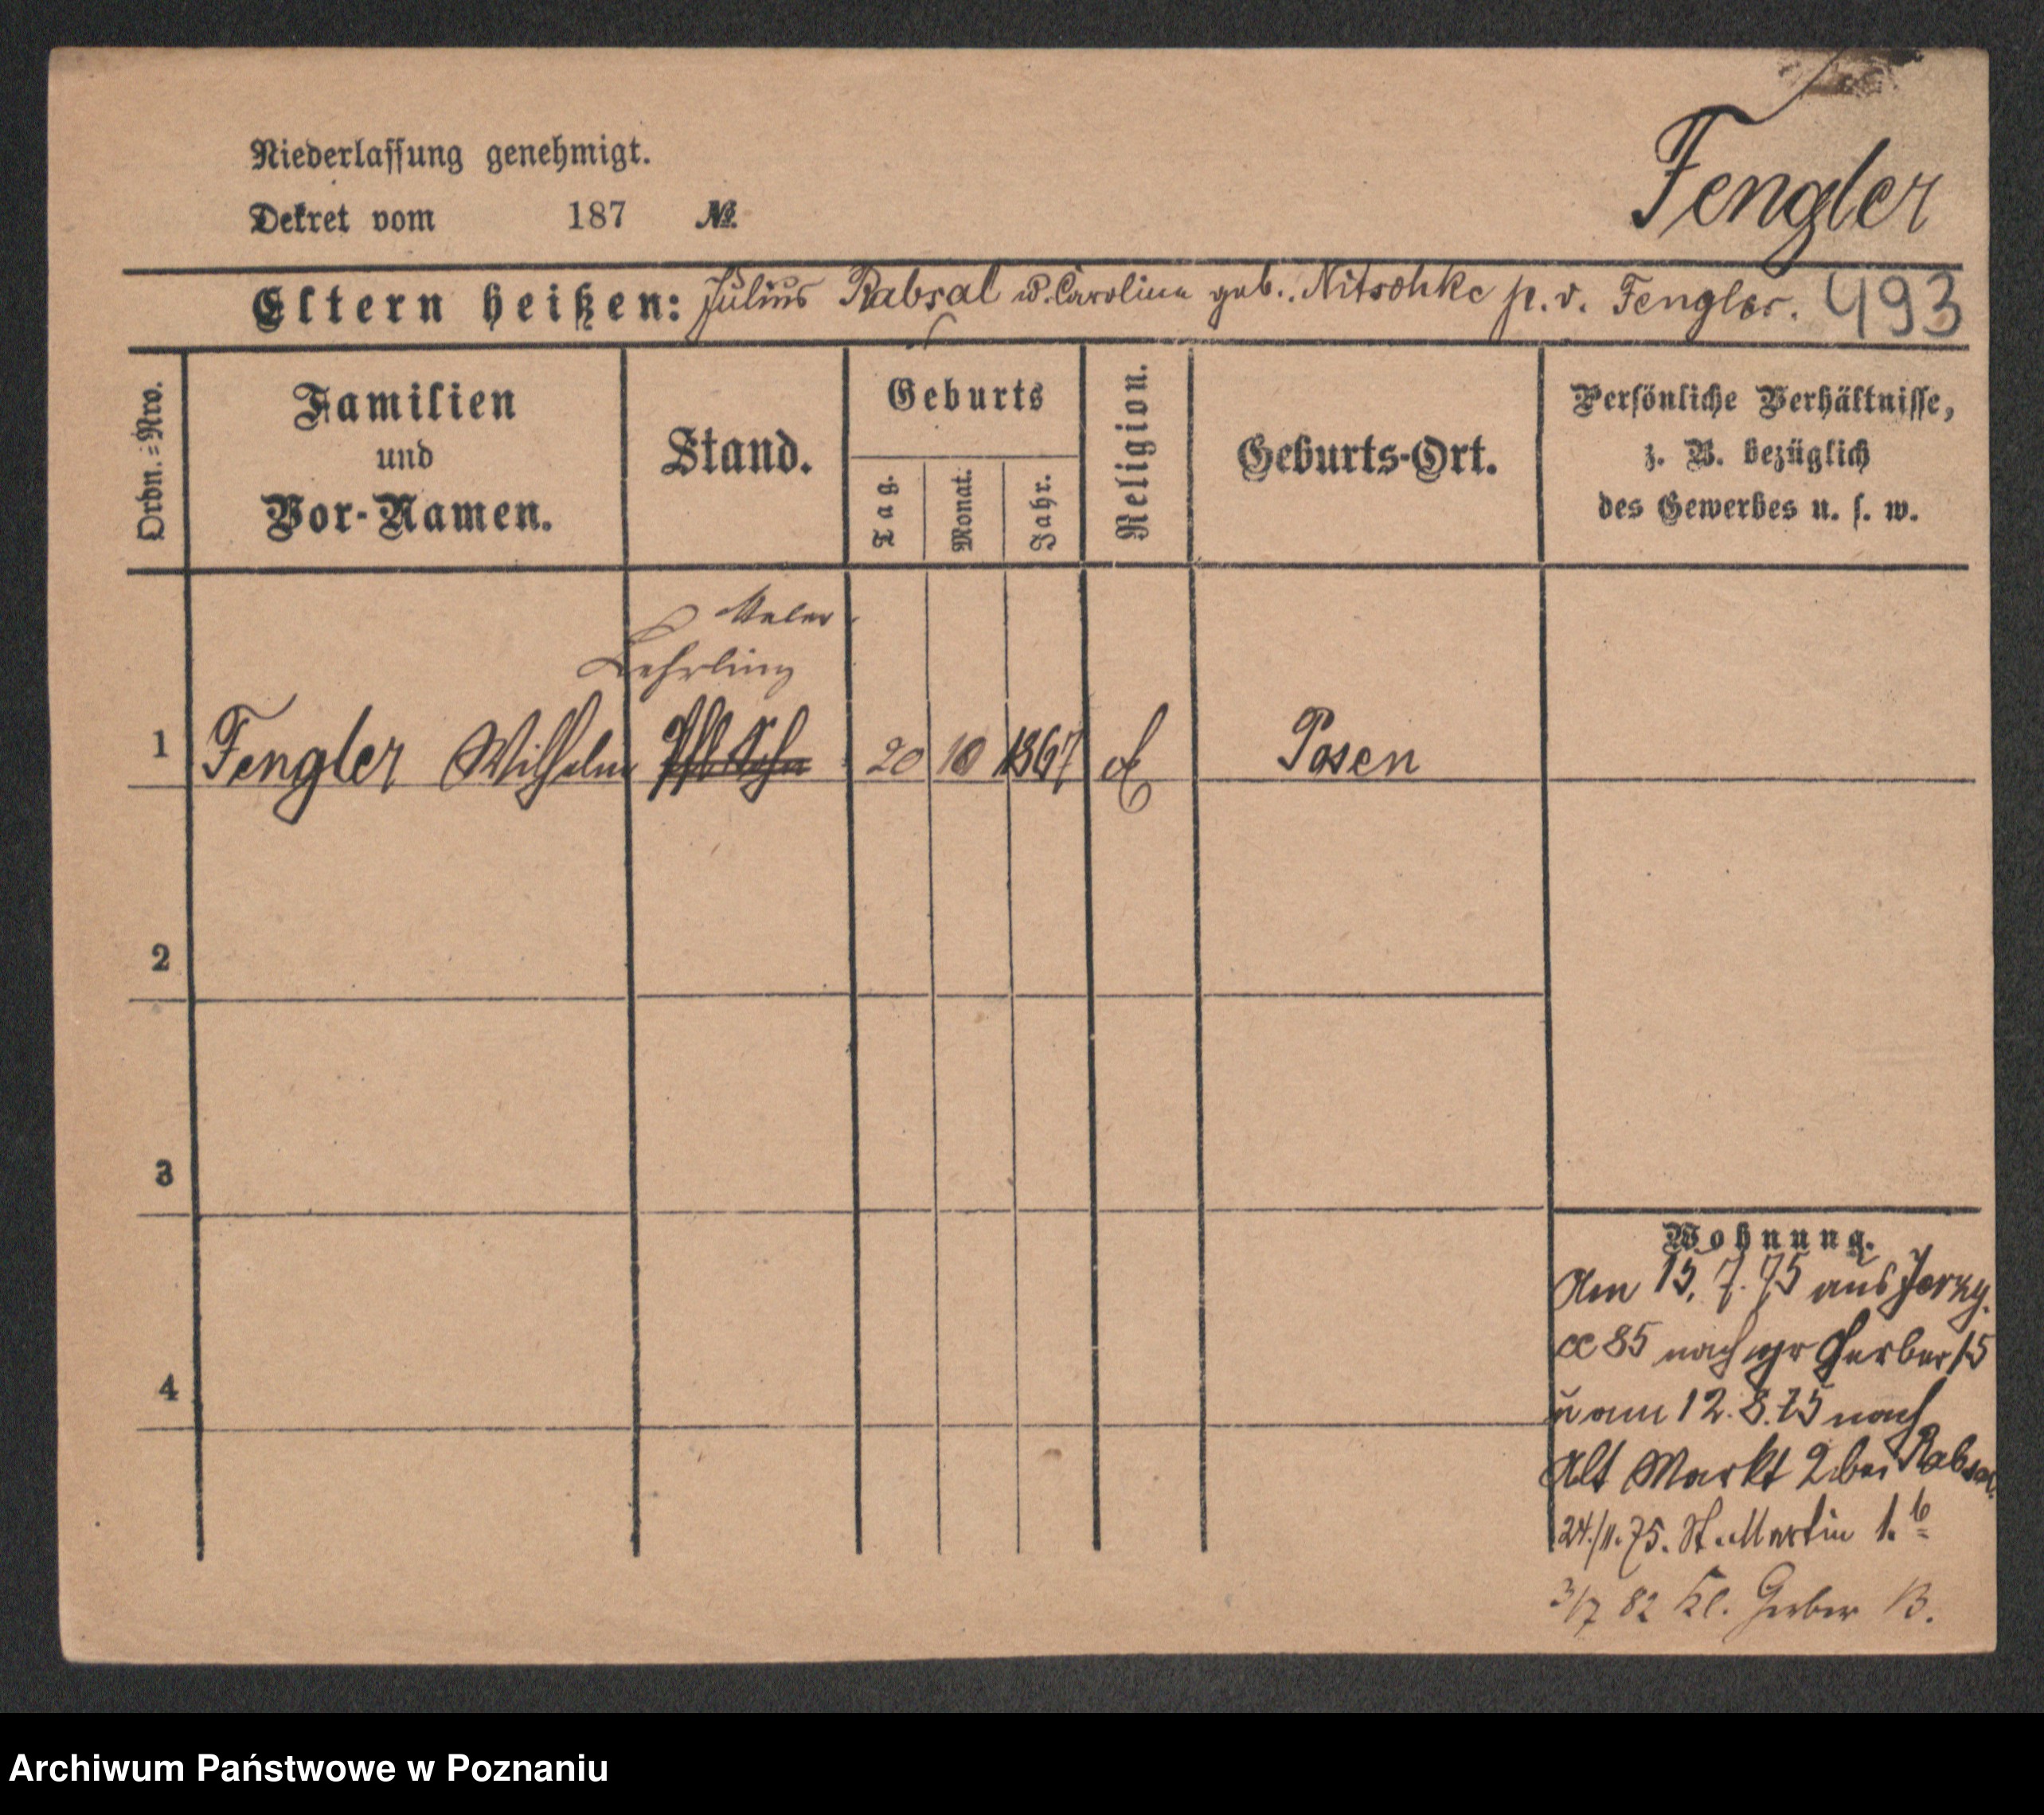 Niederlassung genehmigt.
Dekret vom 187 №
Fengler
Eltern heißen: Julius Rabsal u. Caroline geb. Nitschke p. v. Fengler. 493
Ordn.=Nro.
Familien
und
Vor-Namen.
Stand.
Geburts
Tag.
Monat.
Jahr.
Religion.
Geburts-Ort.
Persönliche Verhältnisse,
z. B. bezüglich
des Gewerbes u. s. w.
Maler
Lehrling
1 Fengler Wilhelm 20 10 1867 Posen
2
3
4
Wohnung.
Am 15. 7. 75 aus Jerzy.
85 nach gr Gerber 15
u am 12. 8. 75 nach
Alt Markt 2 bei
24./11. 75. St. Martin 1.
3/7 82 Kl. Gerber 13.
Archiwum Państwowe w Poznaniu